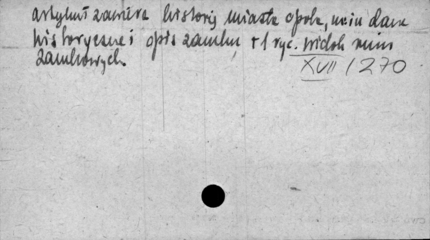 artykuł zawiera historię miasta Opola, m.in. dane
historyczne i opis zamku, + 1 ryc. widok ruin
zamkowych
XVII / 270